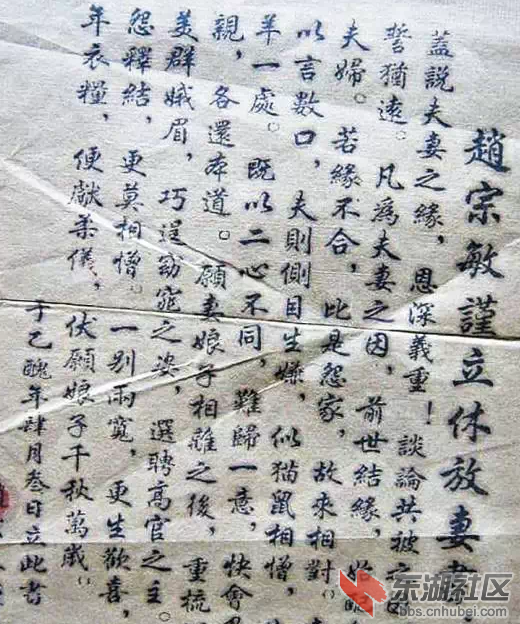 趙宗敏謹立休放妻書
蓋說夫妻之緣,恩深義重!談論共被之
誓猶遠。凡為夫妻之因,前世結緣,始配
夫婦。若緣不合,比是怨家,故來相對。
以言數口,夫則側目生嫌,似猫鼠相憎,
羊一處。既以二心不同,難歸一意,快會
親,各還本道。願妻娘子相離之後,重梳
美群娥眉,巧逞窈窕之姿,選聘高官之主。
怨釋結,更莫相憎。一别兩寬,更生歡喜,
年衣糧,便獻柔儀,伏願娘子千秋萬歲。
于乙醜年肆月叁日立此書
东湖社区
bbs.cnhubei.